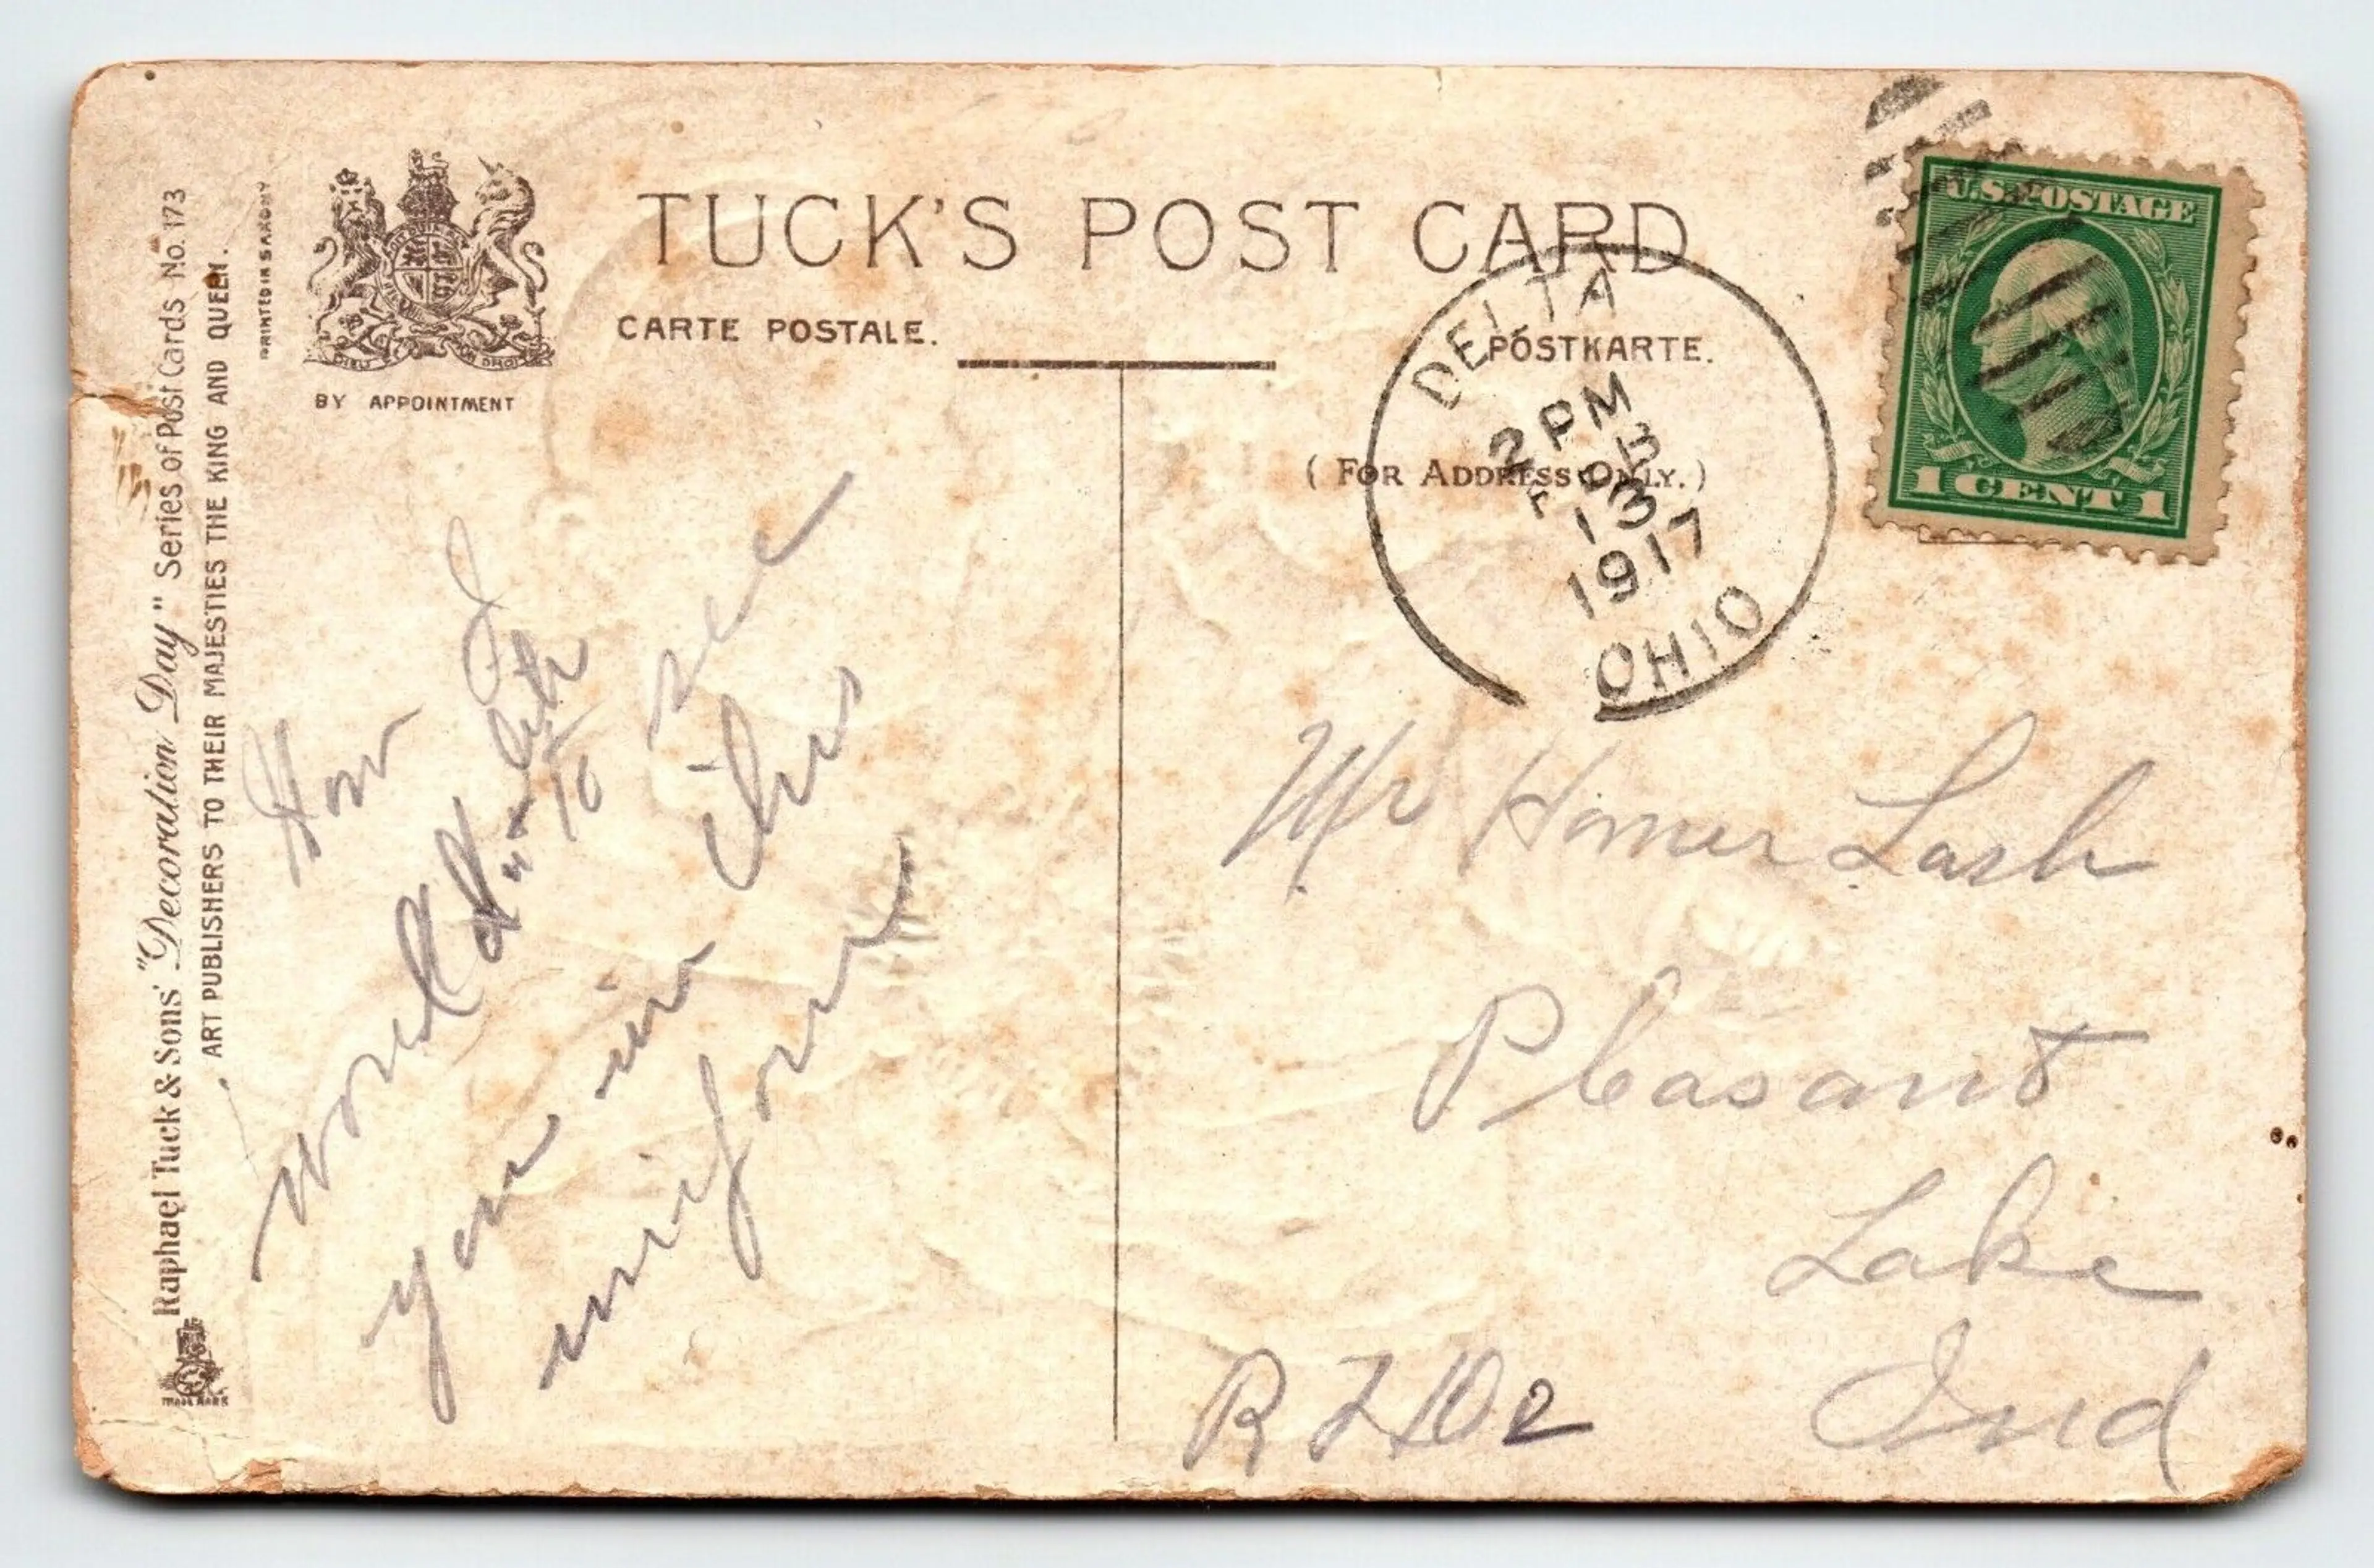 Raphael Tuck & Sons' "Decoration Day" Series of Post Cards No. 173
ART PUBLISHERS TO THEIR MAJESTIES THE KING AND QUEEN.
PRINTED IN SAXONY
TRADE MARK
DIEU DROIT
BY APPOINTMENT
TUCK'S POST CARD
CARTE POSTALE.
POSTKARTE.
(FOR ADDRESS ONLY.)
DELTA
2 PM
FEB
13
1917
OHIO
U.S. POSTAGE
1 CENT 1
How I
would like
to see
you in this
uniform
Mr Homer Lash
Pleasant
Lake
Ind
R F D 2